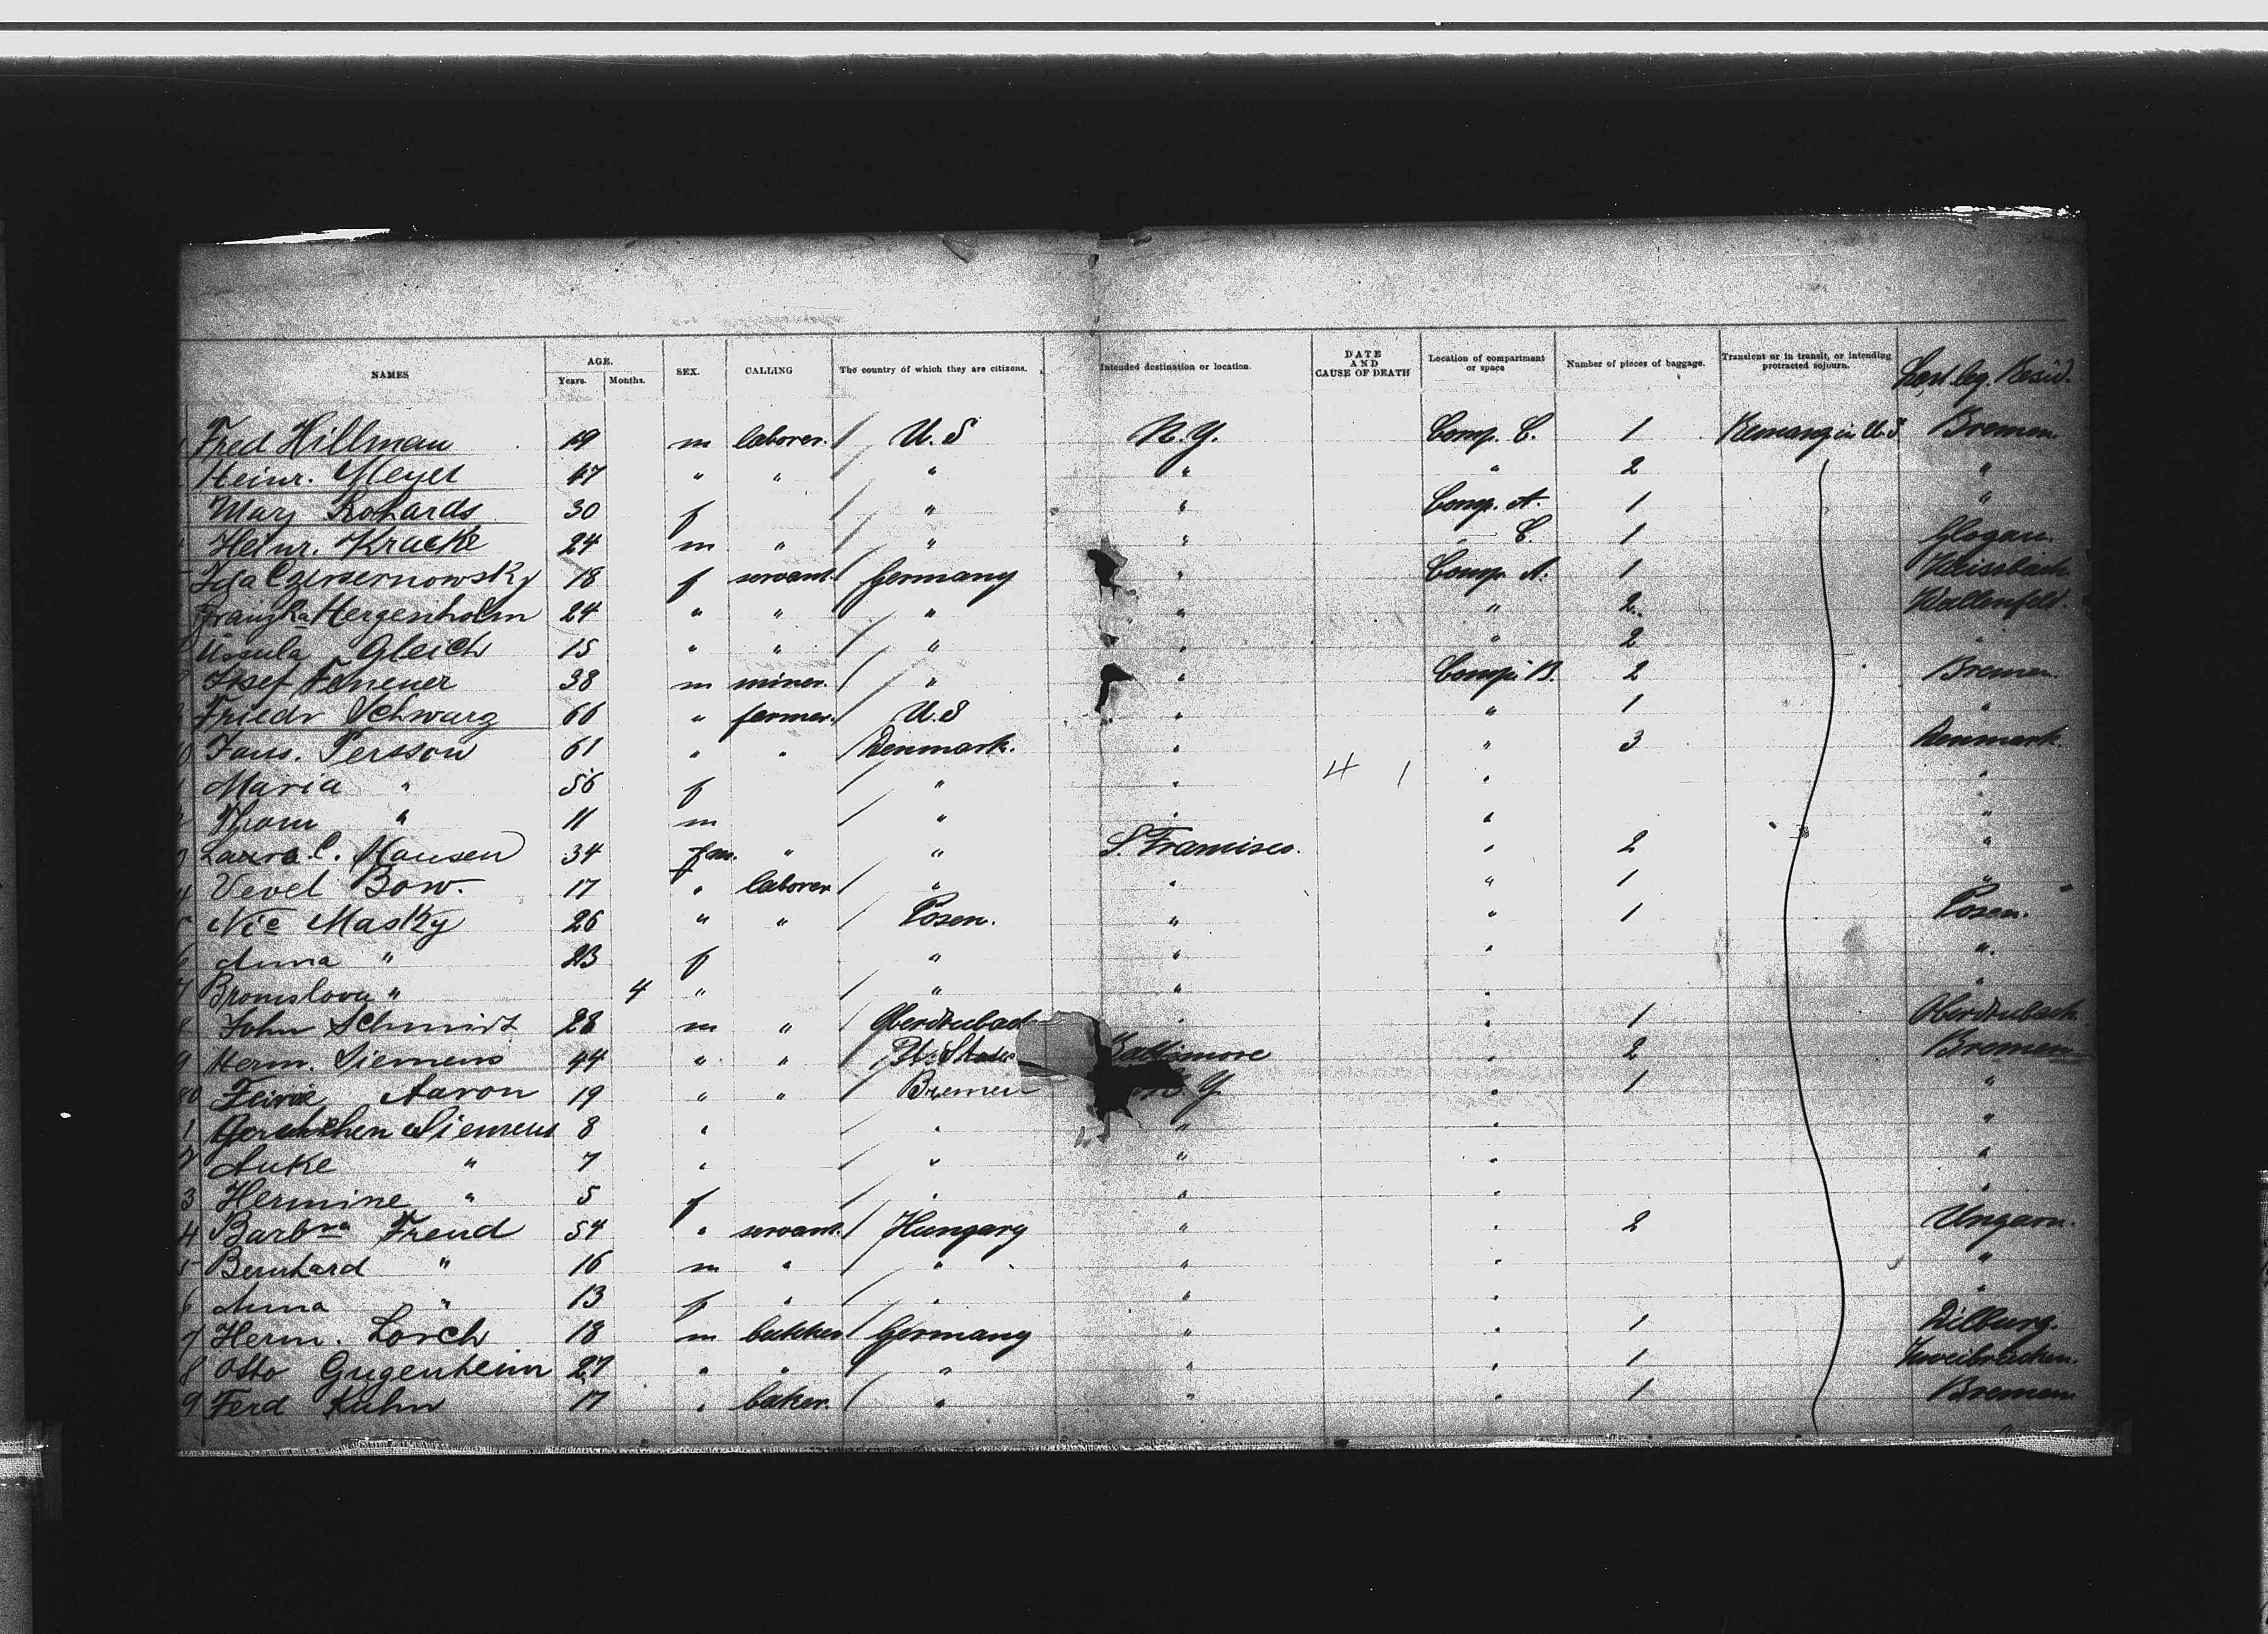 NAMES AGE. Years. Months. SEX. CALLING The country of which they are citizens. Intended destination or location. DATE AND CAUSE OF DEATH Location of compartment or space Number of pieces of baggage. Transient or in transit, or intending protracted sojourn. Last leg. Resid.
Fred Hillman 19 m laborer. / U.S N.Y. Comp. C. 1 Bremen.
Heinr. Meyer 47 " " / " " " 2 "
Mary 30 f / " " Comp. A. 1 "
Heinr. Kracke 24 m " / " " " C. 1 Glogau.
18 f servant. / Germany " Comp. A. 1
Franzka Hergenholm 24 " " / " " " 2.
Ursula Gleich 15 " " / " " " 2 "
Josef 38 m miner. / " " Comp. B. 2 Bremen.
Friedr Schwarz 66 " farmer. / U.S " " 1 "
10 Jans. Persson 61 " " / Denmark. " " 3 Denmark.
1 Maria " 56 f / " " 4 1 " "
2 Thom " 11 m / " " " "
3 Laura C. Hansen 34 f m. " " S. Francisco. " 2 "
4 Vevel Bow. 17 " laborer / " " " 1 "
5 Nic Masky 26 " " / Posen. " " 1 Posen.
6 Anna " 23 f " " " ".
7 Bronislova " 4 " / " " " "
8 John Schmidt 28 m " / " " 1
9 Herm. Siemens 44 " " / U. States Baltimore " 2 Bremen
80 Aaron 19 " " / Bremen N. Y. " 1 "
1 Siemens 8 " / " " " "
2 Anke " 7 " / " " " "
3 Hermine " 5 f / " " " "
4 Barbra Freud 54 " servant. / Hungary " " 2 Ungarn.
5 Bernhard " 16 m " / " " " "
6 Anna " 13 f " / " " " "
7 Herm. Lorch 18 m / Germany " " 1 Dilburg.
8 Otto Gugenheim 27 " " / " " " 1 Zweibrücken.
9 Ferd Kuhn 17 " baker. / " " " 1 Bremen